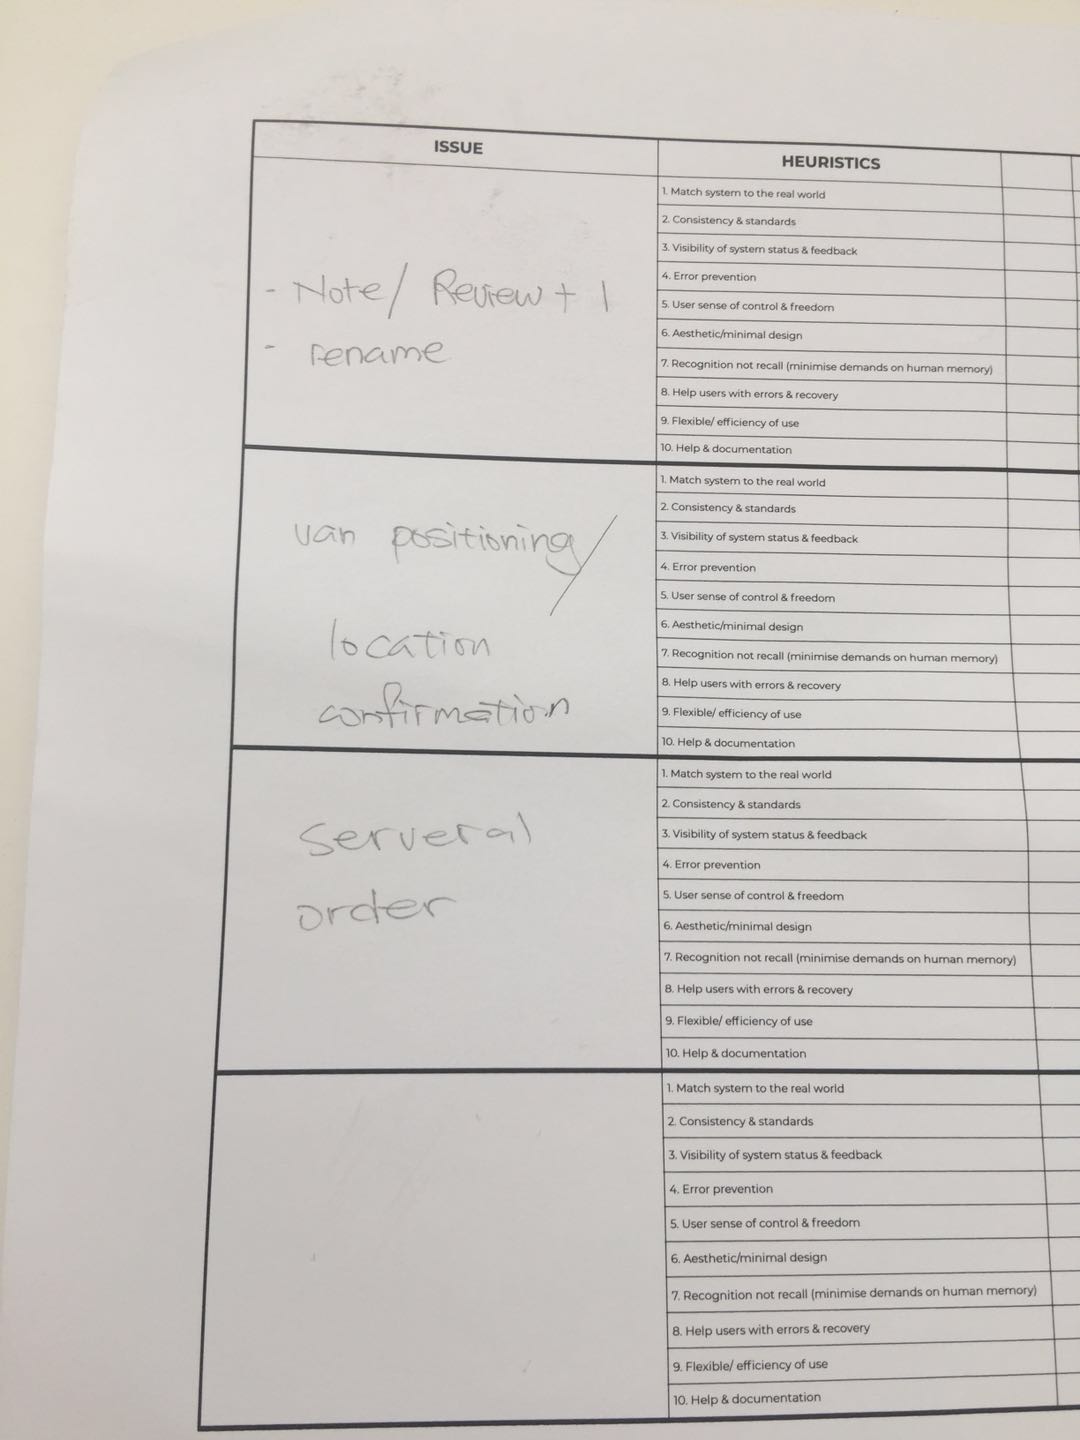 ISSUE
HEURISTICS
- Note/ Review + 1
- rename
1. Match system to the real world
2. Consistency & standards
3. Visibility of system status & feedback
4. Error prevention
5. User sense of control & freedom
6. Aesthetic/minimal design
7. Recognition not recall (minimise demands on human memory)
8. Help users with errors & recovery
9. Flexible/ efficiency of use
10. Help & documentation
van positioning/
location
confirmation
1. Match system to the real world
2. Consistency & standards
3. Visibility of system status & feedback
4. Error prevention
5. User sense of control & freedom
6. Aesthetic/minimal design
7. Recognition not recall (minimise demands on human memory)
8. Help users with errors & recovery
9. Flexible/ efficiency of use
10. Help & documentation
serveral
order
1. Match system to the real world
2. Consistency & standards
3. Visibility of system status & feedback
4. Error prevention
5. User sense of control & freedom
6. Aesthetic/minimal design
7. Recognition not recall (minimise demands on human memory)
8. Help users with errors & recovery
9. Flexible/ efficiency of use
10. Help & documentation
1. Match system to the real world
2. Consistency & standards
3. Visibility of system status & feedback
4. Error prevention
5. User sense of control & freedom
6. Aesthetic/minimal design
7. Recognition not recall (minimise demands on human memory)
8. Help users with errors & recovery
9. Flexible/ efficiency of use
10. Help & documentation